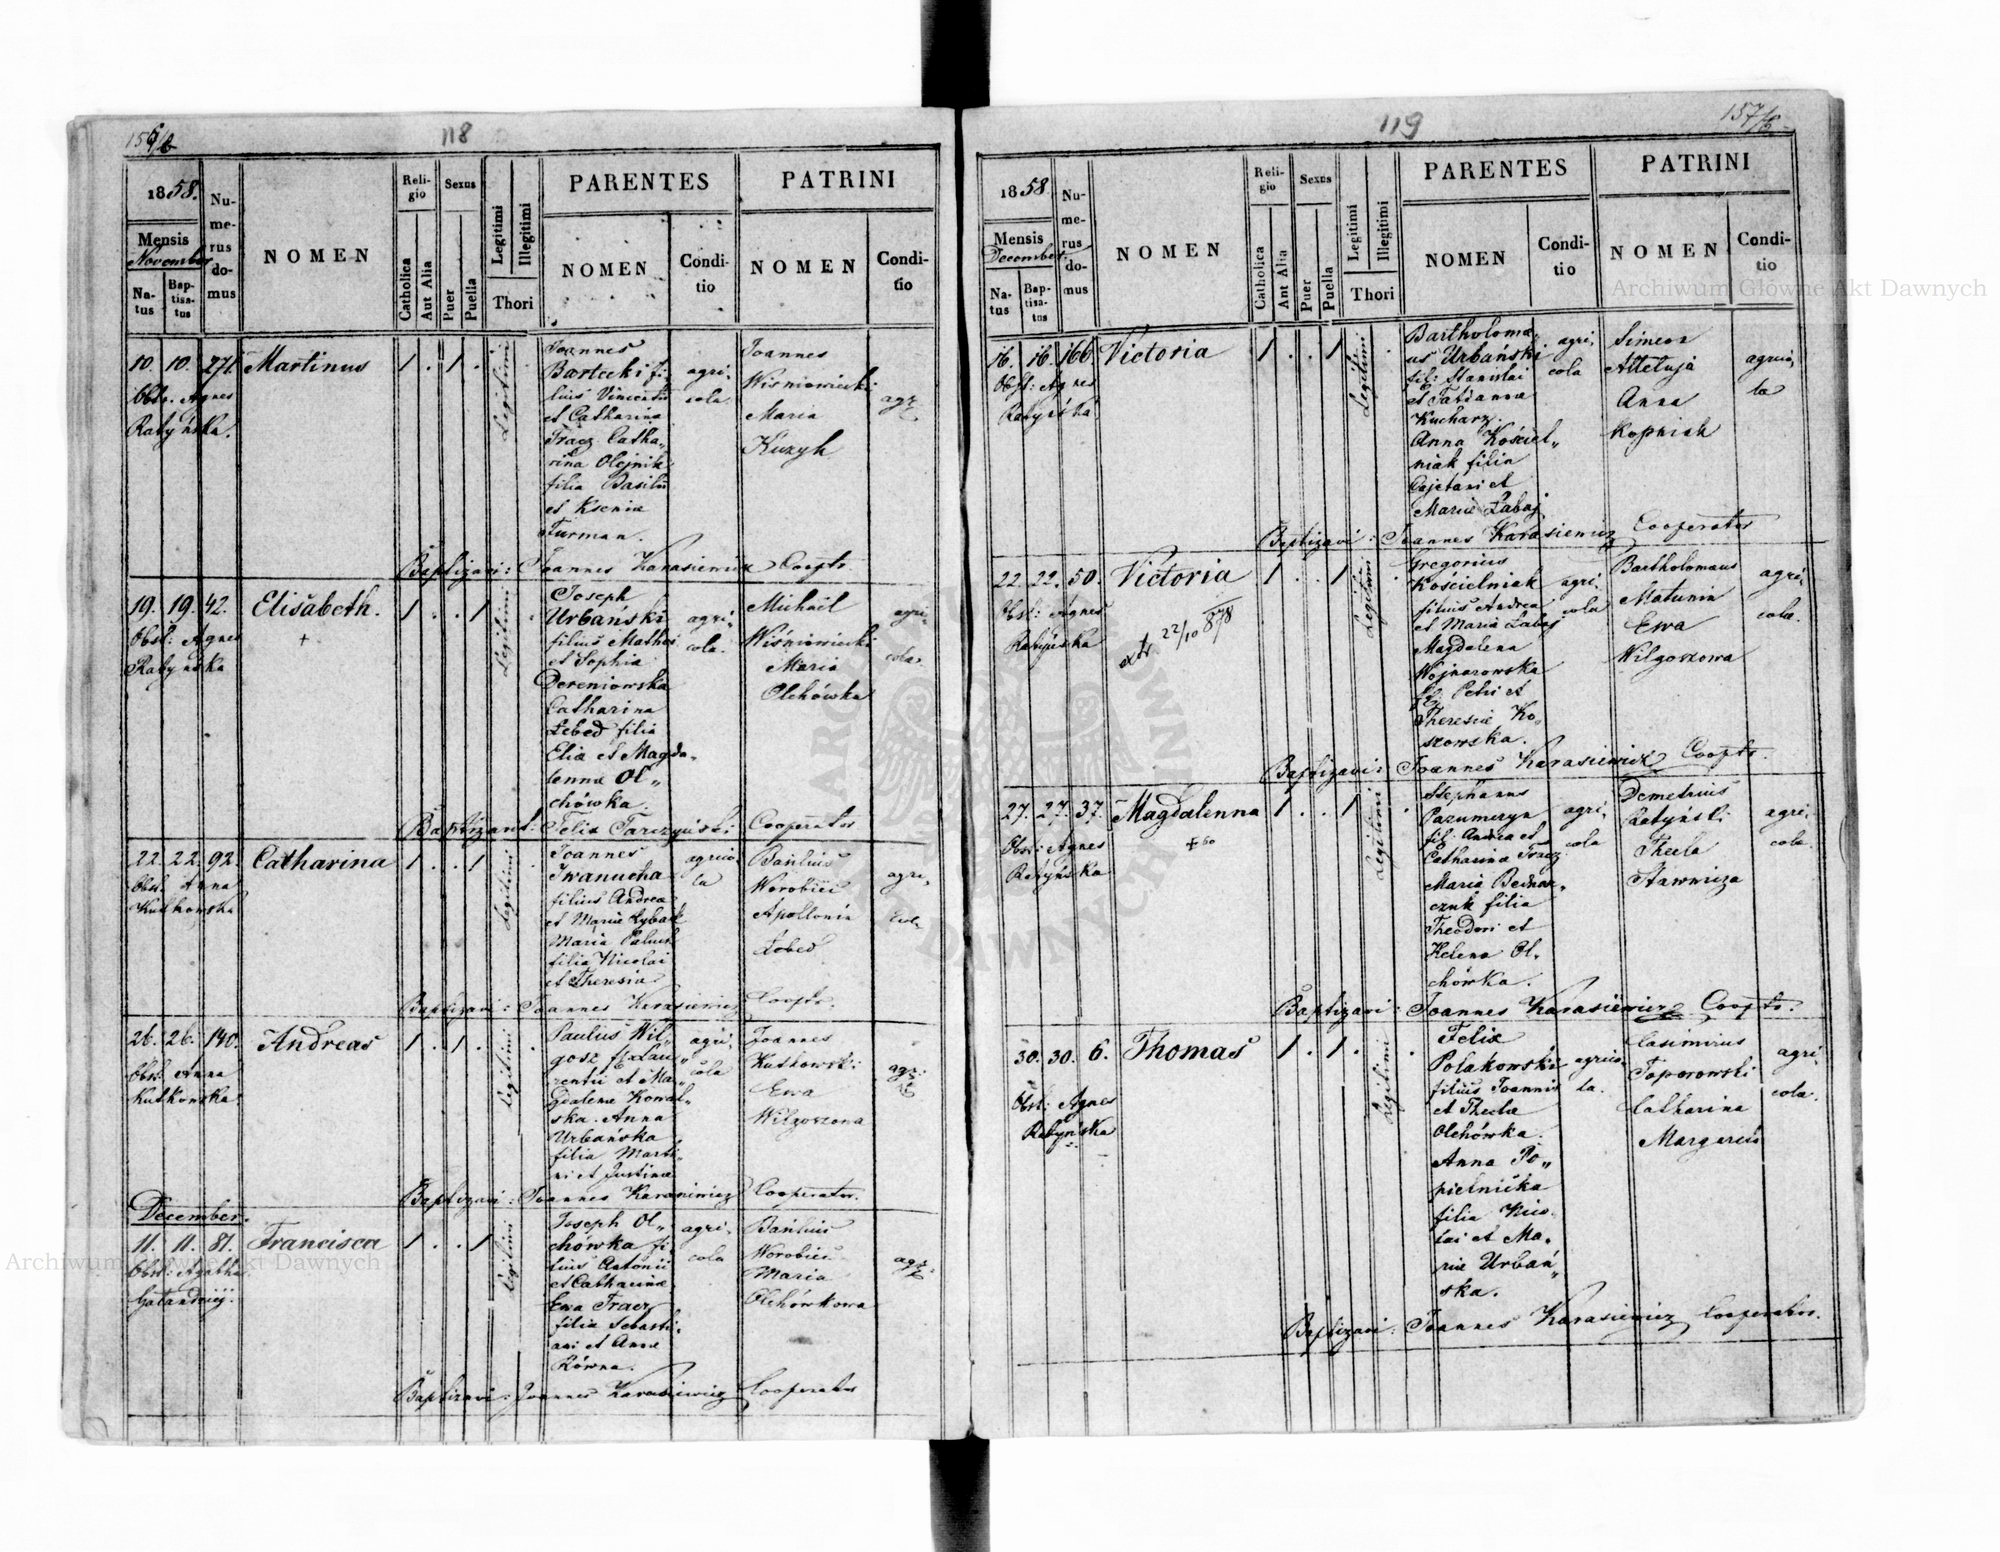 118
1858.
Mensis
November
Na-
tus
Bap-
tisa-
tus
Nu-
me-
rus
do-
mus
NOMEN
Reli-
gio
Catholica
Aut Alia
Sexus
Puer
Puella
Legitimi
Illegitimi
Thori
PARENTES
NOMEN
Condi-
tio
PATRINI
NOMEN
Condi-
tio
10. 10. 271. Martinus 1 . 1 .
Obst. Agnes
Ratyńska.
Legitimi
Joannes
Bartecki fi-
lius Vincentii
et Catharina
Tracz Catha„
rina Olejnik
filia Basilii
et Kseniæ
Furman.
agri-
cola
Joannes
Wiśniowiecki
Maria
Kuzyk
agr
Baptizavi: Joannes Karasiewicz Coopto.
19. 19. 42. Elisabeth. 1 . . 1
+
Obst: Agnes
Ratyńska
Legitimi
Joseph
Urbański
filius Mathei
et Sophia
Dereniowska
Catharina
Łebed filia
Eliæ et Magda-
lennæ Ol„
chówka.
agri-
cola.
Michail
Wiśniowiecki
Maria
Olchówka
agri-
cola.
Baptizavit: Felix Tarczyński Cooperator
22. 22. 92. Catharina 1 . . 1
Obst. Anna
Kutkowska
Legitimi
Joannes
Iwanucha
filius Andreæ
et Mariæ Rybark
Maria Paluch
filia Nicolai
et Theresiæ
agrico-
la
Basilius
Worobiec
Apollonia
Łobed
agri-
col.
Baptizavi: Joannes Karasiewicz Coopto.
26. 26. 140. Andreas 1 . 1 .
Obst. Anna
Kutkowska
Legitimi
Paulus Wil„
gosz f. Lau„
rentii et Ma„
gdalenæ Kowal„
ska. Anna
Urbańska
filia Marti-
ni et Justinæ
agri-
cola
Joannes
Kutkowski
Ewa
Wilgoszona
agri
Baptizavi: Joannes Karasiewicz Cooperator.
December.
11. 11. 81. Francisca 1 . . 1
Obst: Agatha
Legitimi
Joseph Ol„
chówka fi-
lius Antonii
et Catharinæ
Ewa Tracz
filia Sebasti-
ani et Annæ
Równa.
agri-
cola
Basilius
Worobiec
Maria
Olchówkowa
agr
Baptizavi: Joannes Karasiewicz Cooperator
119
1858
Mensis
December.
Na-
tus
Bap-
tisa-
tus
Nu-
me-
rus
do-
mus
NOMEN
Reli-
gio
Catholica
Ant Alia
Sexus
Puer
Puella
Legitimi
Illegitimi
Thori
PARENTES
NOMEN
Condi-
tio
PATRINI
NOMEN
Condi-
tio
16. 16. 166. Victoria 1 . . 1
Obst: Agnes
Ratyńska
Legitimi
Bartholomæ-
us Urbański
fil: Stanislai
et Tatianna
Kucharz.
Anna Kościel„
niak filia
Cajetani et
Mariæ Łabaj.
agri-
cola
Simeon
Alleluja
Anna
Kopniak
agrico-
la
Baptizavi: Joannes Karasiewicz Cooperator
22. 22. 50. Victoria 1 . . 1
Obst: Agnes
Ratyńska
extr. 22/10 878
Legitimi
Gregorius
Kościelniak
filius Andreæ
et Mariæ Łabaj
Magdalena
Wojnarowska
fil. Petri et
Theresiæ Ko-
szowska.
agri-
cola
Bartholomæus
Matunin
Ewa
Wilgoszowa
agri-
cola.
Baptizavi: Joannes Karasiewicz Coopto.
27. 27. 37. Magdalenna 1 . . 1
Obst: Agnes
Ratyńska
Legitimi
Stephanus
Pazumeryn
fil: Andreæ et
Catharinæ Tracz
Maria Bednar-
czuk filia
Theodori et
Helenæ Ol-
chówka.
agri-
cola
Demetrius
Ratyński
Thecla
Hawryza
agri-
cola.
Baptizavi: Joannes Karasiewicz Coopto.
30. 30. 6. Thomas 1 . 1 .
Obst: Agnes
Ratyńska
Legitimi
Felix
Polakowski
filius Joannis
et Theclæ
Olchówka.
Anna Po„
pielnicka
filia Nico-
lai et Ma-
riæ Urbań„
ska.
agrico-
la.
Casimirus
Toporowski
Catharina
Margareis
agri-
cola.
Baptizavi: Joannes Karasiewicz Cooperator.
Archiwum Główne Akt Dawnych
Archiwum Główne Akt Dawnych